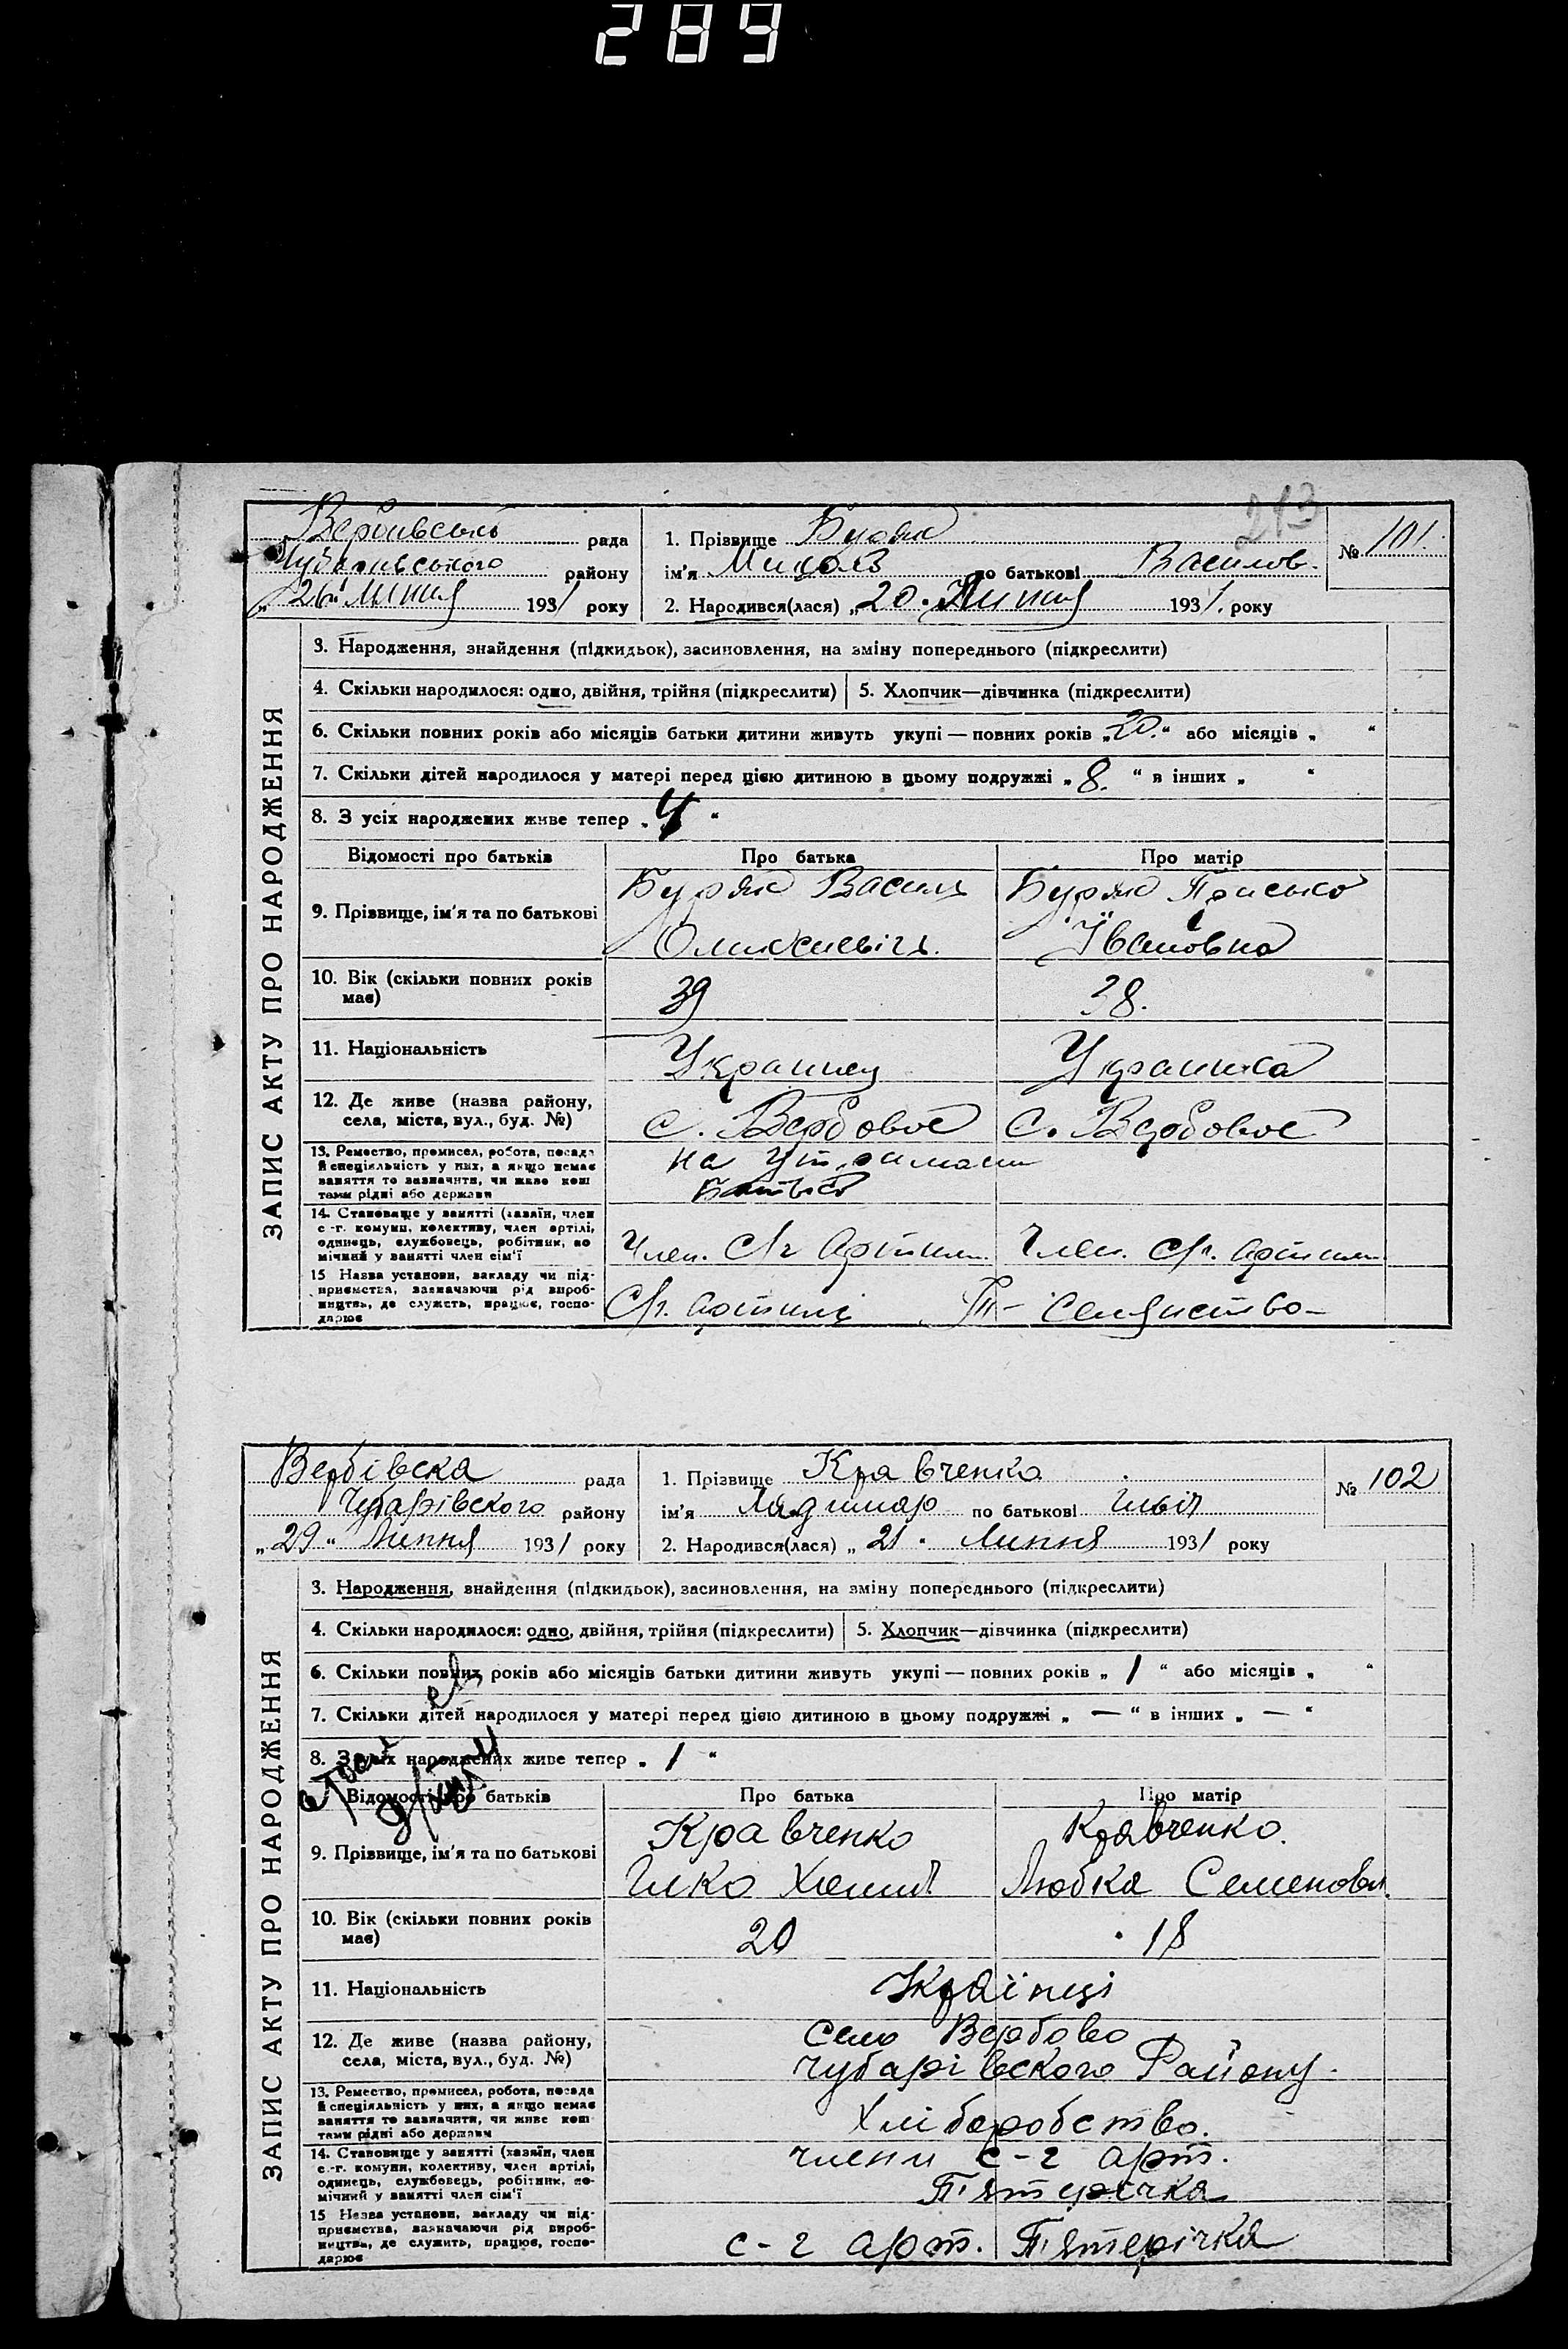 289
213
Вербівська рада
Чубарівського району
„26“ Липня 1931 року
1. Прізвище Буряк
ім'я Микола по батькові Василов.
2. Народився(лася) „20. Липня 1931. року
№ 101.
ЗАПИС АКТУ ПРО НАРОДЖЕННЯ
3. Народження, знайдення (підкидьок), засиновлення, на зміну попереднього (підкреслити)
4. Скільки народилося: одно, двійня, трійня (підкреслити) 5. Хлопчик—дівчинка (підкреслити)
6. Скільки повних років або місяців батьки дитини живуть укупі — повних років „20.“ або місяців „ “
7. Скільки дітей народилося у матері перед цією дитиною в цьому подружжі „8.“ в інших „ “
8. З усіх народжених живе тепер „4“
Відомості про батьків Про батька Про матір
9. Прізвище, ім'я та по батькові
Буряк Василь Буряк Приська
Івановна
10. Вік (скільки повних років має)
39 38.
11. Національність
Украинец Украинка
12. Де живе (назва району, села, міста, вул., буд. №)
с. Вербовое с. Вербовое
13. Ремество, промисел, робота, посада
й спеціяльність у них, а якщо немає
заняття то зазначити, чи живе кош
тами рідні або держави
на
14. Становище у занятті (хазяїн, член
с.-г. комуни, колективу, член артілі,
одинець, службовець, робітник, по
мічний у занятті член сім'ї
Член. С/г Артили. Член. С/г. артили
15 Назва установи, закладу чи під-
приємства, зазначаючи рід вироб-
ництва, де служить, працює, госпо-
дарює
С/г. артилі
Вербівска рада
Чубарівского району
„29“ Липня 1931 року
1. Прізвище Кравченко
ім'я по батькові Ильїч
2. Народився(лася) „21. Липня 1931 року
№ 102
ЗАПИС АКТУ ПРО НАРОДЖЕННЯ
3. Народження, знайдення (підкидьок), засиновлення, на зміну попереднього (підкреслити)
4. Скільки народилося: одно, двійня, трійня (підкреслити) 5. Хлопчик—дівчинка (підкреслити)
6. Скільки повних років або місяців батьки дитини живуть укупі — повних років „1“ або місяців „ “
7. Скільки дітей народилося у матері перед цією дитиною в цьому подружжі „—“ в інших „—“
8. З усіх народжених живе тепер „1“
Відомості про батьків Про батька Про матір
9. Прізвище, ім'я та по батькові
Кравченко Кравченко.
Илко Любка Семеновн.
10. Вік (скільки повних років має)
20 18
11. Національність
Українці
12. Де живе (назва району, села, міста, вул., буд. №)
село Вербово
Чубарівского Району.
13. Ремество, промисел, робота, посада
й спеціяльність у них, а якщо немає
заняття то зазначити, чи живе кош
тами рідні або держави
Хліборобство.
14. Становище у занятті (хазяїн, член
с.-г. комуни, колективу, член артілі,
одинець, службовець, робітник, по-
мічний у занятті член сім'ї
члени с-г арт.
П'ятирічка
15 Назва установи, закладу чи під-
приємства, зазначаючи рід вироб-
ництва, де служить, працює, госпо-
дарює
с-г арт. П'ятерічка